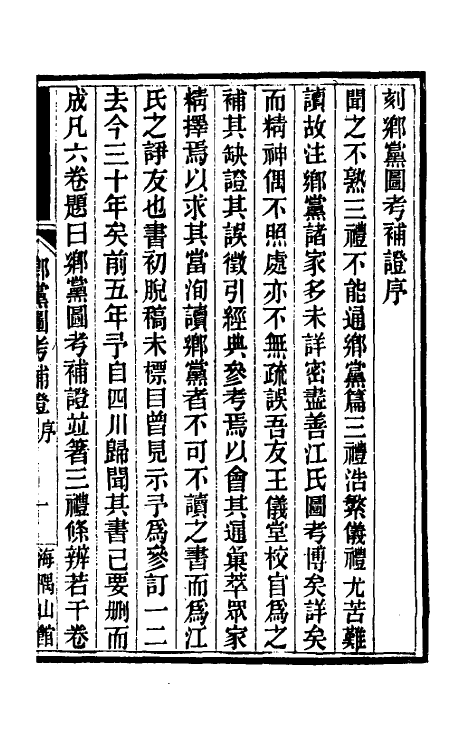 刻鄉黨圖考補證序
聞之不熟三禮不能通鄉黨篇三禮浩繁儀禮尤苦難
讀故注鄉黨諸家多未詳密盡善江氏圖考博矣詳矣
而精神偶不照處亦不無疏誤吾友王儀堂校官爲之
補其缺證其誤徵引經典參考焉以會其通彙萃眾家
精擇焉以求其當洵讀鄉黨者不可不讀之書而爲江
氏之諍友也書初脫稿未標目曾見示予爲參訂一二
去今三十年矣前五年予自四川歸聞其書已要删而
成凡六卷題曰鄉黨圖考補證並著三禮條辨若干卷
鄉黨圖考補證 序 一 海隅山館